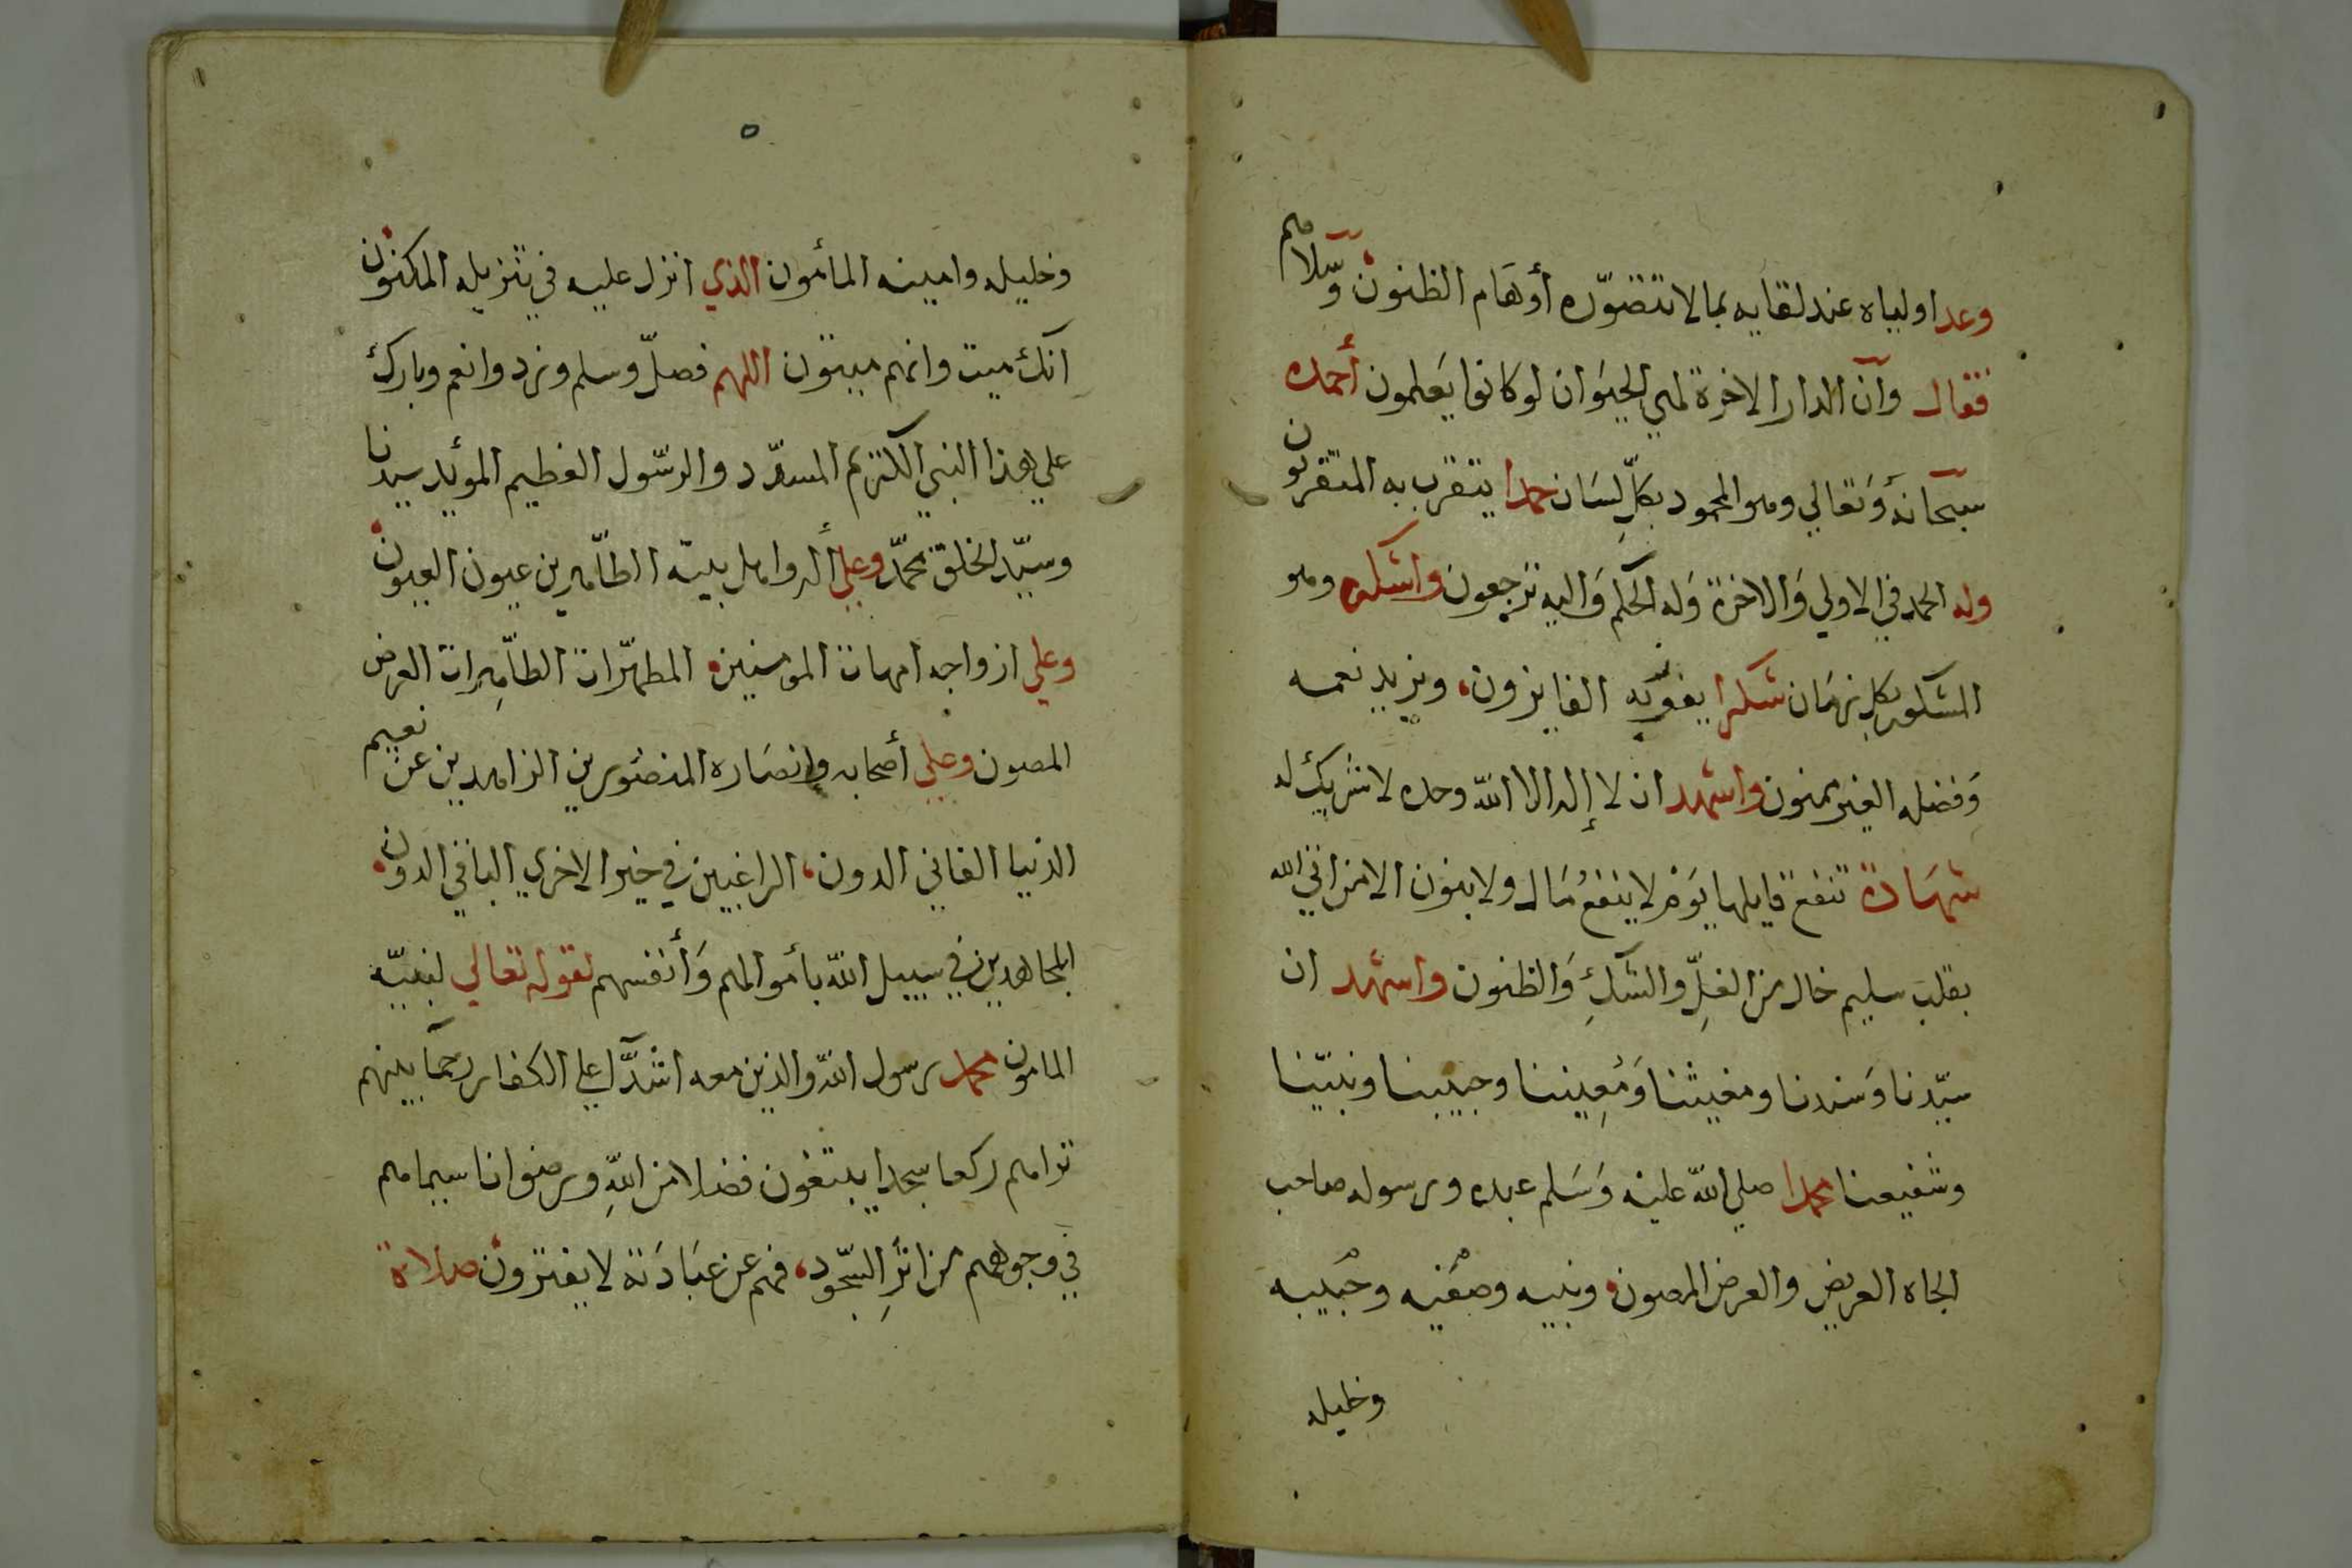 وعد اولياه عند لقايه بما لا تتصوّره أوهَام الظنون وسّلاهم
فقال وآن الدار الاخرة لهي الحيَوان لوكانوا يَعلمون أحمده
سبحانه وَتعالي وهو المحمود بكلِّ لسَان حمدا يتقرب به المتقربون
وله الحمد في الاولي وَالاخرة وَله الحكم وَاليه ترجعون واشكره وهو
المشكور بكل زمَان شكرا يفوز به الفايزون، ويزيد نعمه
وَفضله الغير ممنون واشهد ان لا إله الا الله وحده لا شريك له
شهَادة تنفع قايلها يَوْم لا ينفعُ مَال ولا بنون الا من اتي الله
بقلب سليم خال من الغلِّ والشكِ وَالظنون واشهد ان
سيّدنا وَسَندنا ومغيثنا وَمُعِيننا وحبيبنا ونبيّنا
وشفيعنا محمدا صلي الله عليه وَسَلم عبده ورسوله صاحب
الجاه العريض والعرض المصون ونبيه وصفيه وحبيبه
وخليله
٥
وخليله وامينه المأمون الذي انزل عليه في تنزيله المكنون
انك ميت وانهم ميتون اللهم فصلّ وسلم وزد وانعم وبارك
علي هذا النبي الكريم المسدّد والرسّول العظيم المؤيد سيدنا
وسيّد الخلق محمّد وعلي أله واهل بيته الطّاهرين عيون العيون
وعلي ازواجه امهات المومنين المطهّرات الطاهِرات العرض
المصون وعلي أصحابه وانصَاره المنصورين الزاهدين عن نعيم
الدنيا الفاني الدون، الراغبين في خير الاخري الباقي الدون
المجاهدين في سبيل الله بأموالهم وَأنفسهم لقوله تعالي لنبيّه
المامون محمد رسول الله والذين معه اشدّآ علي الكفار رحمآ بينهم
تراهم ركعا سجدا يبتغون فضلا من اللهِ ورضوانا سيماهم
في وجوههم من اثرِ السّجود، فهم عن عبَادَته لا يفترون صلاة